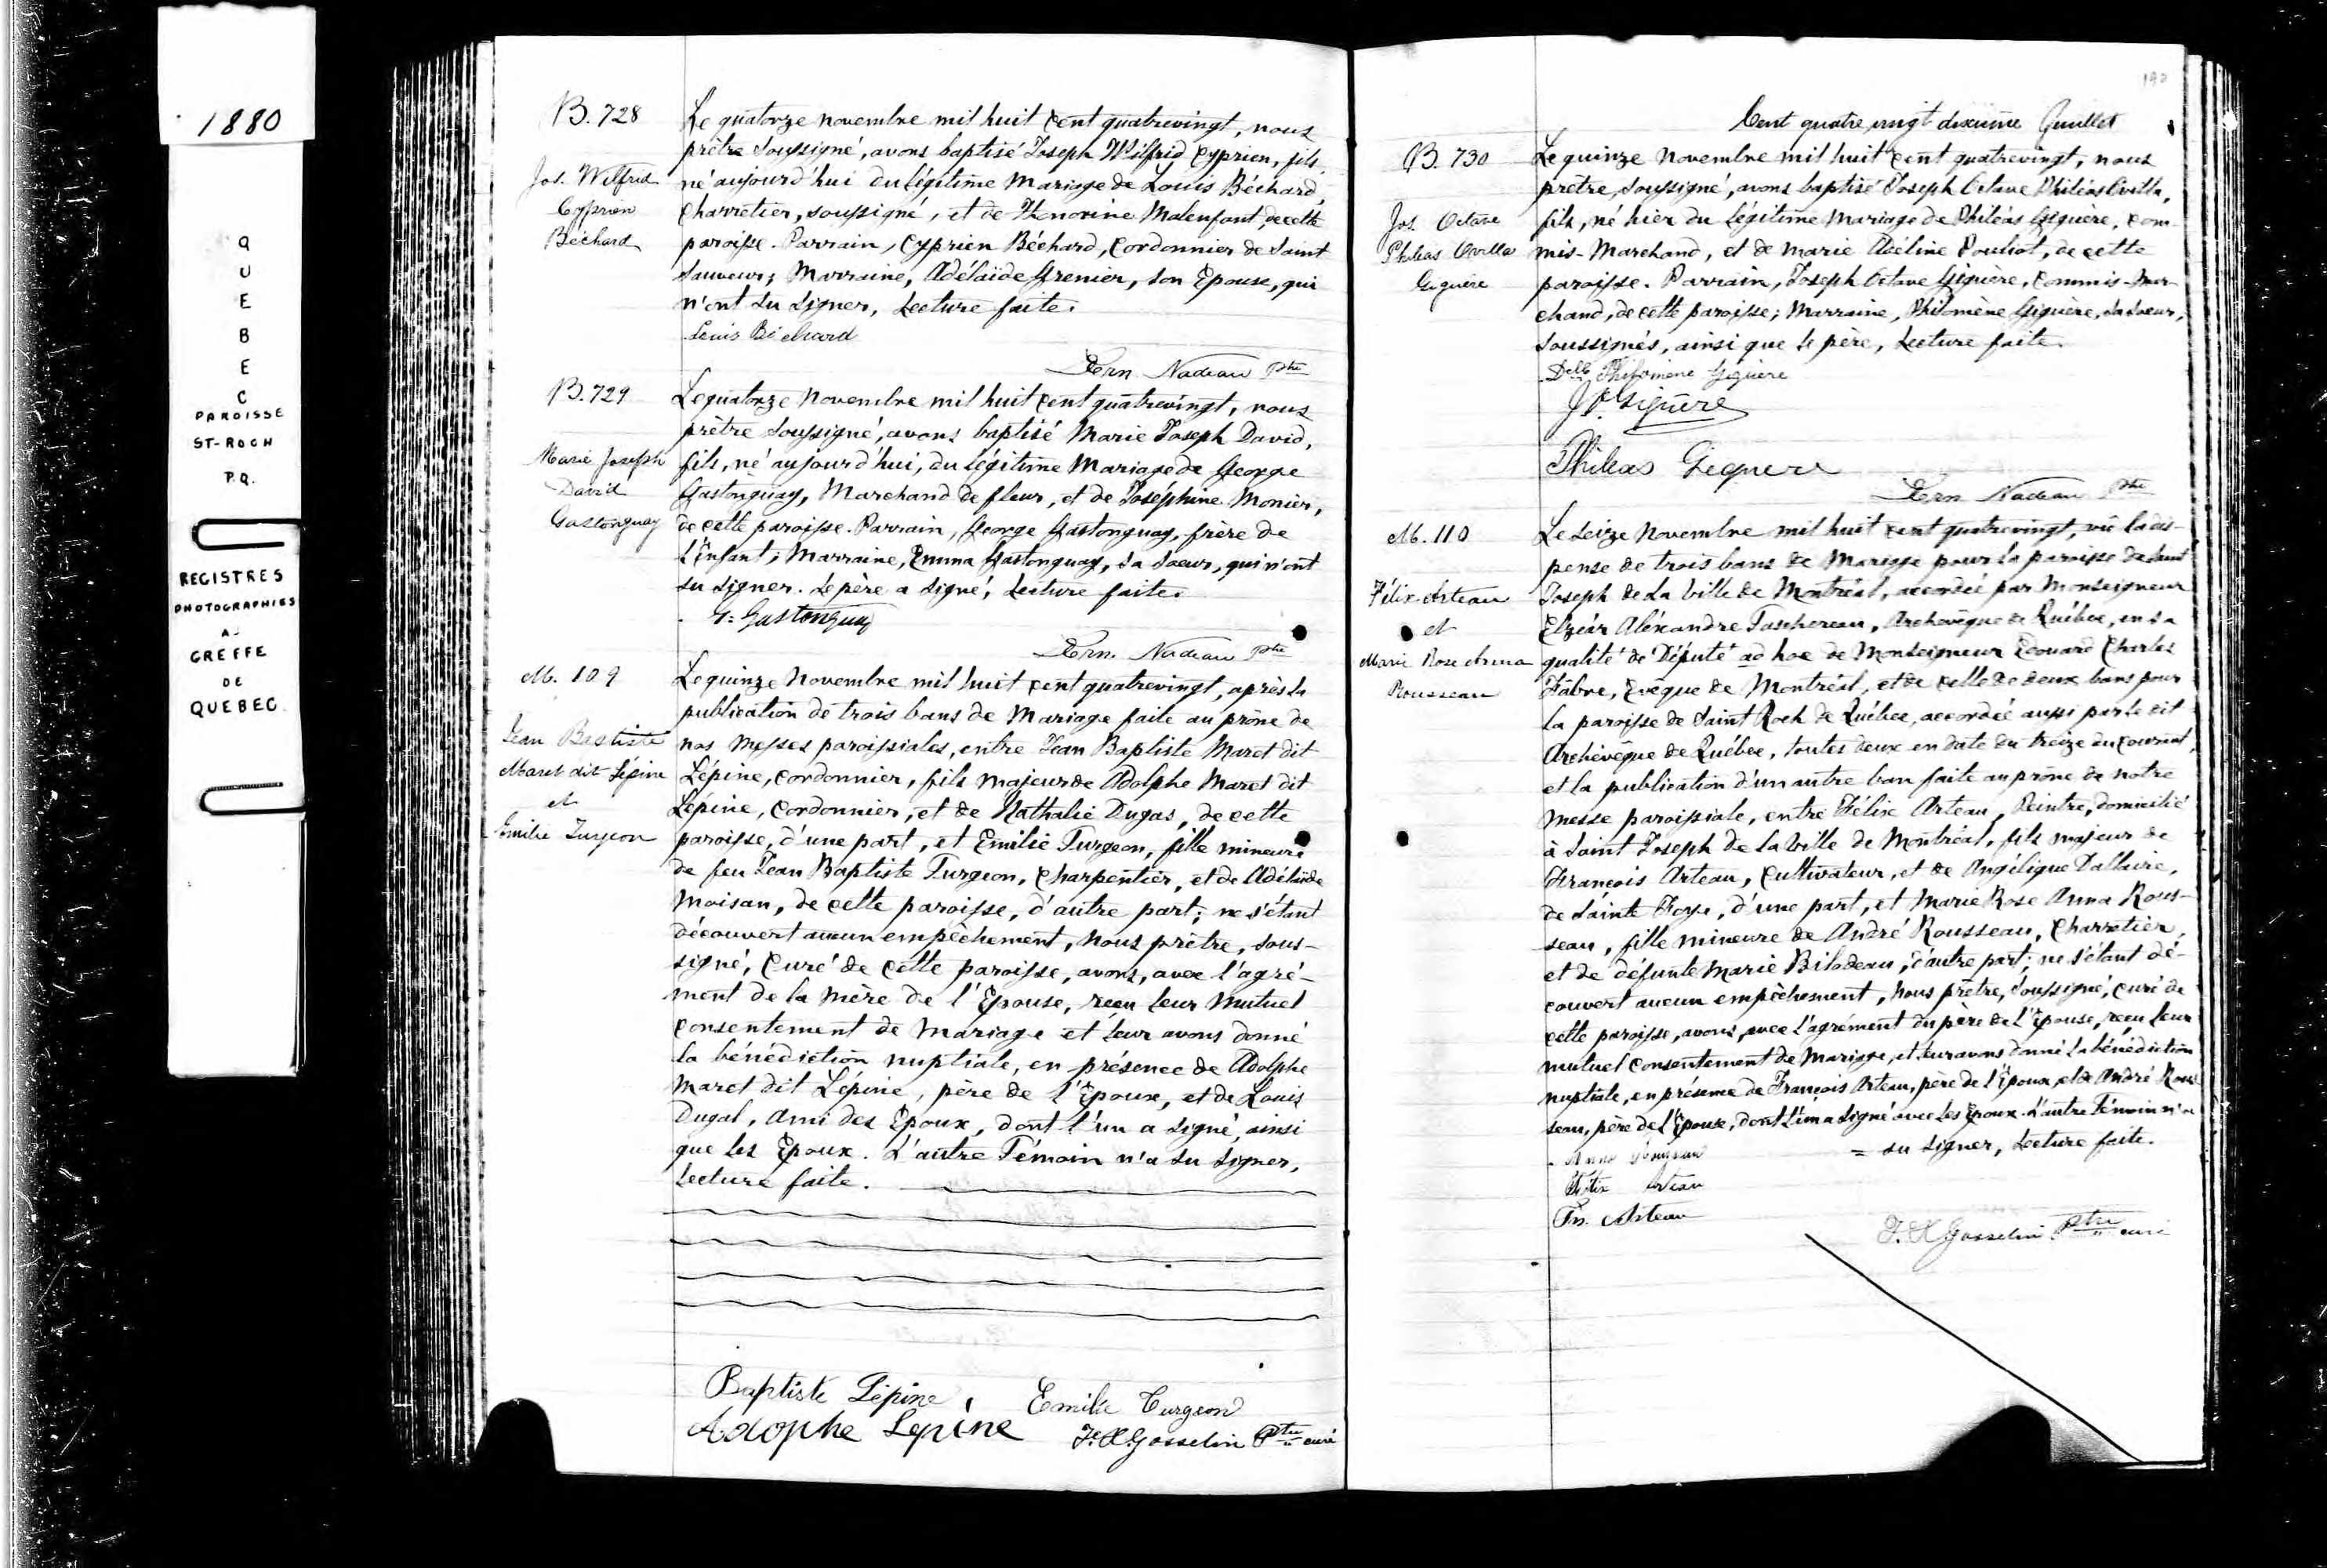 1880
QUEBEC
PAROISSE
ST-ROCH
P.Q.
REGISTRES
PHOTOGRAPHIES
AU
GREFFE
DE
QUEBEC
B. 728
Jos. Wilfrid
Cyprien
Béchard
Le quatorze novembre mil huit cent quatrevingt, nous
prêtre soussigné, avons baptisé Joseph Wilfrid Cyprien, fils,
né aujourd'hui du légitime Mariage de Louis Béchard,
Charretier, soussigné, et de Honorine Malenfant, de cette
paroisse. Parrain, Cyprien Béchard, Cordonnier de Saint
Sauveur; Marraine, Adélaïde Grenier, son Epouse, qui
n'ont su signer, Lecture faite.
Louis Béchard
Fern Nadeau Ptre
B. 729
Marie Joseph
David
Gastonguay
Le quatorze novembre mil huit cent quatrevingt, nous
prêtre soussigné, avons baptisé Marie Joseph David,
fils, né aujourd'hui, du légitime Mariage de George
Gastonguay, Marchand de fleur, et de Joséphine Monier,
de cette paroisse. Parrain, George Gastonguay, frère de
l'Enfant; Marraine, Emma Gastonguay, sa soeur, qui n'ont
su signer. Le père a signé, Lecture faite.
G. Gastonguay
Fern. Nadeau Ptre
M. 109
Jean Baptiste
Maret dit Lépine
et
Emilie Turgeon
Le quinze Novembre mil huit cent quatrevingt, après la
publication de trois bans de Mariage faite au prône de
nos Messes paroissiales, entre Jean Baptiste Maret dit
Lépine, Cordonnier, fils majeur de Adolphe Maret dit
Lépine, Cordonnier, et de Nathalie Dugas, de cette
paroisse, d'une part, et Emilie Turgeon, fille mineure
de feu Jean Baptiste Turgeon, Charpentier, et de Adélaïde
Moisan, de cette paroisse, d'autre part; ne s'étant
découvert aucun empêchement, Nous prêtre, sous-
signé, Curé de cette paroisse, avons, avec l'agré-
ment de la Mère de l'Epouse, reçu leur Mutuel
Consentement de Mariage et leur avons donné
la bénédiction nuptiale, en présence de Adolphe
Maret dit Lépine, père de l'Epoux, et de Louis
Dugal, Ami des Epoux, dont l'un a signé, ainsi
que les Epoux. L'autre Témoin n'a su signer,
Lecture faite.
Baptiste Lépine Emilie Turgeon
Adophe Lepine F. X. Gosselin Ptre curé
190
Cent quatre vingt dixième feuillet
B. 730
Jos. Octave
Philéas Ovilla
Giguère
Le quinze Novembre mil huit cent quatrevingt, nous
prêtre, soussigné, avons baptisé Joseph Octave Philéas Ovilla,
fils, né hier du légitime Mariage de Philéas Giguère, Com-
mis-Marchand, et de Marie Adéline Pouliot, de cette
paroisse. Parrain, Joseph Octave Giguère, Commis-Mar-
chand, de cette paroisse; Marraine, Philomène Giguère, sa soeur,
Soussignés, ainsi que le père, Lecture faite.
Delle Philomène Giguère
J. O. Giguère
Philéas Giguere
Fern Nadeau Ptre
M. 110
Félix Arteau
et
Marie Rose Anna
Rousseau
Le seize Novembre mil huit cent quatrevingt, vu la dis-
pense de trois bans de Mariage pour la paroisse de Saint
Joseph de la Ville de Montréal, accordée par Monseigneur
Elzéar Aléxandre Taschereau, Archevêque de Québec, en sa
qualité de Député ad hoc de Monseigneur Edouard Charles
Fabre, Evêque de Montréal, et de celle de deux bans pour
la paroisse de Saint Roch de Québec, accordée aussi par le dit
Archévêque de Québec, toutes deux en date du treize du courant,
et la publication d'un autre ban faite au prône de notre
Messe paroissiale, entre Félix Arteau, Peintre, domicilié
à Saint Joseph de la Ville de Montréal, fils majeur de
François Arteau, Cultivateur, et de Angélique Dallaire,
de Sainte Foye, d'une part, et Marie Rose Anna Rous-
seau, fille mineure de André Rousseau, Charretier,
et de défunte Marie Bilodeau, d'autre part; ne s'étant dé-
couvert aucun empêchement, Nous prêtre, soussigné, curé de
cette paroisse, avons, avec l'agrément du père de l'Epouse, reçu leur
mutuel consentement de Mariage, et leur avons donné la bénédiction
nuptiale, en présence de François Arteau, père de l'Epoux, et de André Rous-
seau, père de l'Epouse, dont l'un a signé avec les Epoux. L'autre Témoin n'a
= su signer, Lecture faite.
Anna Rousseau
Félix Arteau
Frs. Arteau
F. X. Gosselin Ptre curé